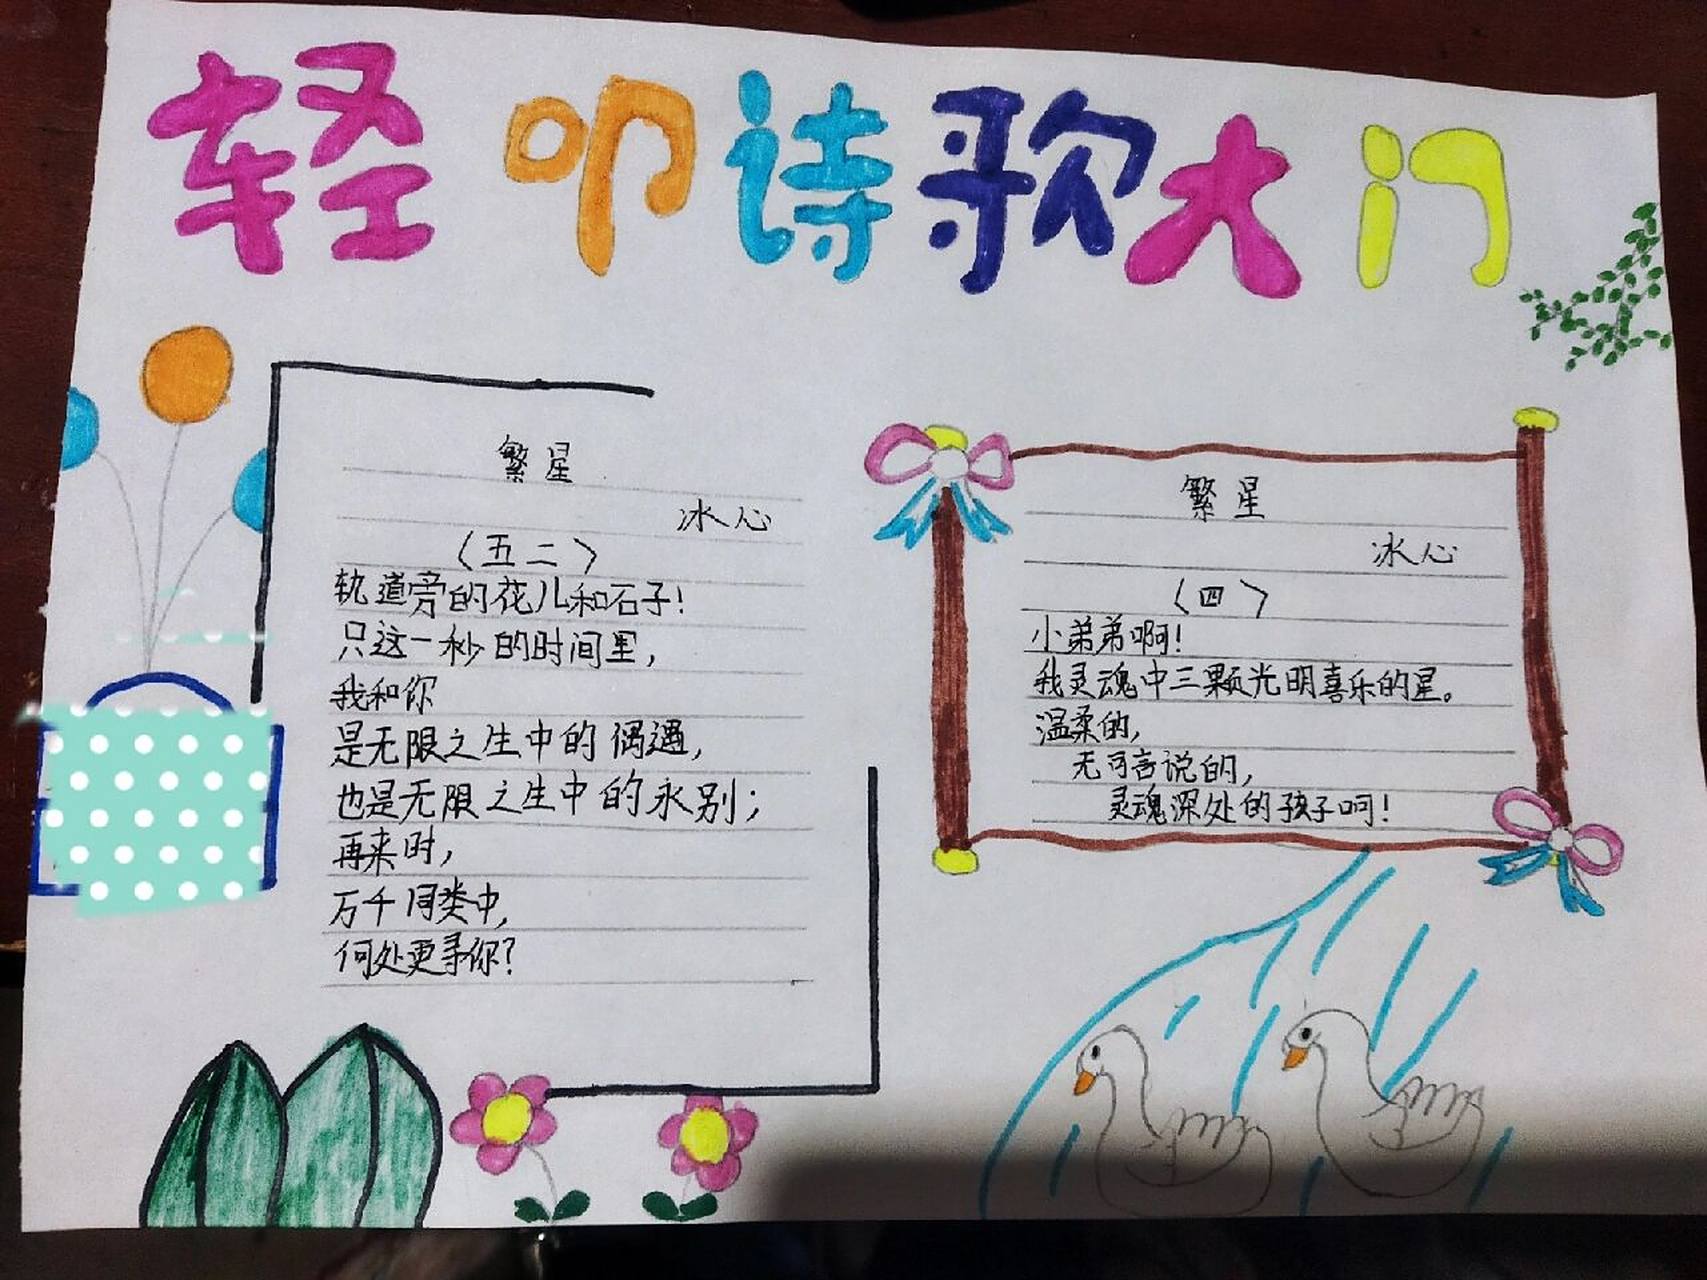 轻叩诗歌大门
繁星
冰心
（五二）
轨道旁的花儿和石子！
只这一秒的时间里，
我和你
是无限之生中的偶遇，
也是无限之生中的永别；
再来时，
万千同类中，
何处更寻你？
繁星
冰心
（四）
小弟弟啊！
我灵魂中三颗光明喜乐的星。
温柔的，
无可言说的，
灵魂深处的孩子呵！